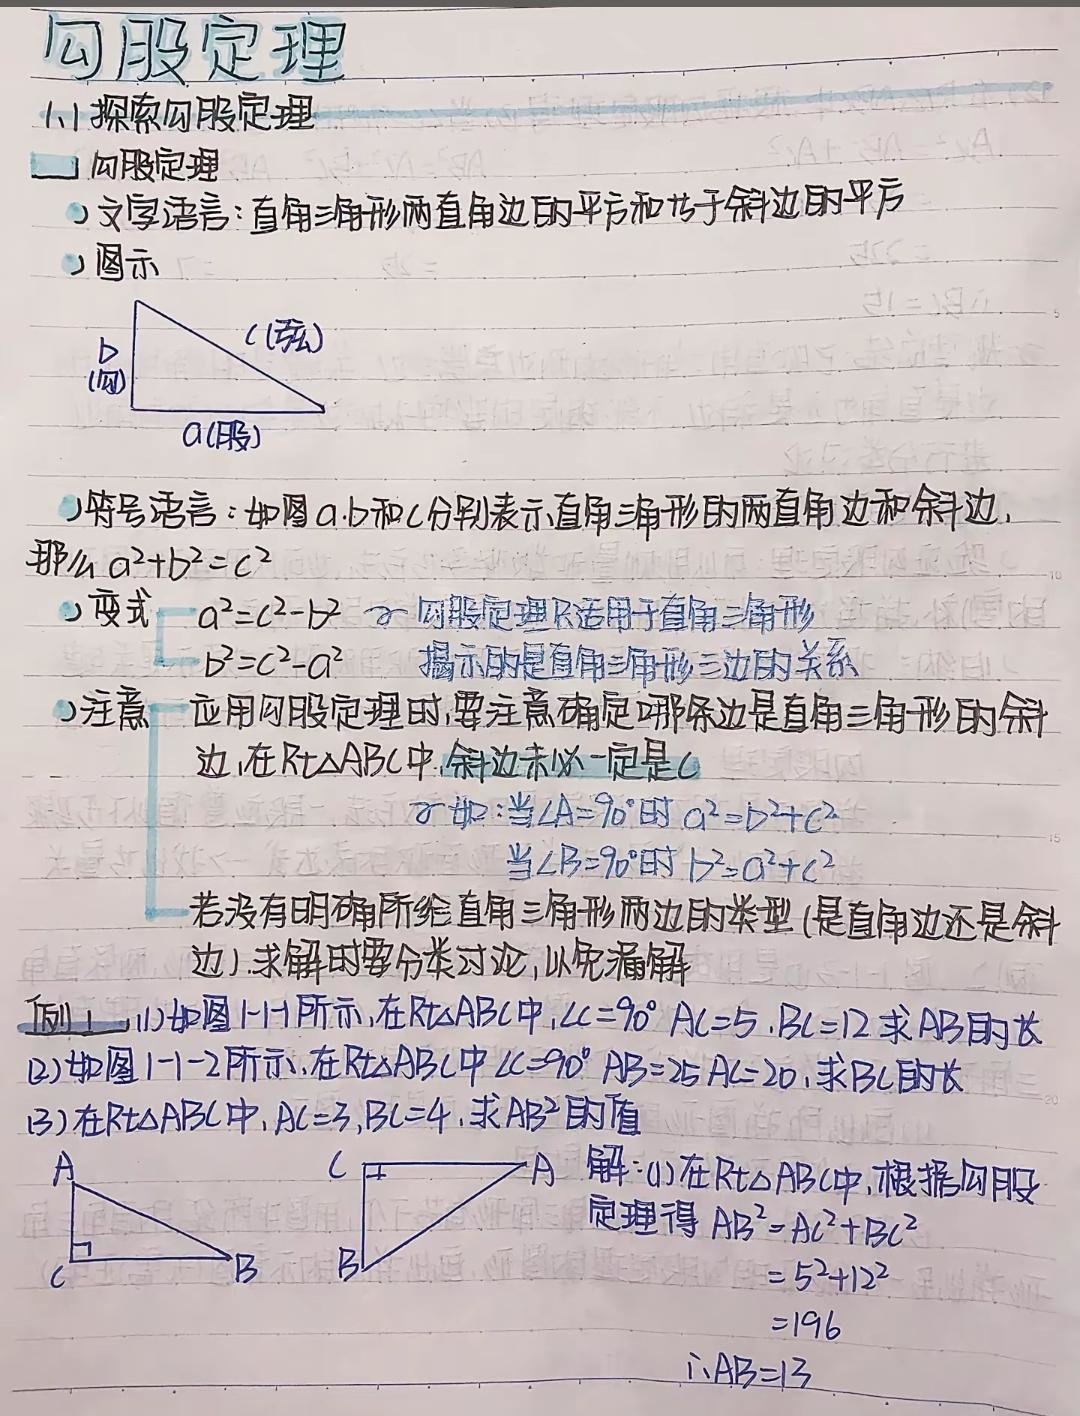 勾股定理
1.1 探索勾股定理
勾股定理
文字语言:直角三角形两直角边的平方和等于斜边的平方
图示
c(弦)
b
(勾)
a(股)
符号语言:如图a.b和c分别表示直角三角形的两直角边和斜边,
那么a²+b²=c²
变式 a²=c²-b² 勾股定理只适用于直角三角形
b²=c²-a² 揭示的是直角三角形三边的关系
注意 应用勾股定理时,要注意确定哪条边是直角三角形的斜
边,在Rt△ABC中,斜边未必一定是c
如:当∠A=90°时 a²=b²+c²
当∠B=90°时 b²=a²+c²
若没有明确所给直角三角形两边的类型(是直角边还是斜
边).求解时要分类讨论,以免漏解
例1 (1)如图1-1-1所示,在Rt△ABC中,∠C=90° AC=5,BC=12 求AB的长
(2)如图1-1-2所示,在Rt△ABC中∠C=90° AB=25 AC=20,求BC的长
(3)在Rt△ABC中,AC=3,BC=4,求AB²的值
A C A 解:(1)在Rt△ABC中,根据勾股
定理得 AB²=AC²+BC²
C B B =5²+12²
=196
∴AB=13